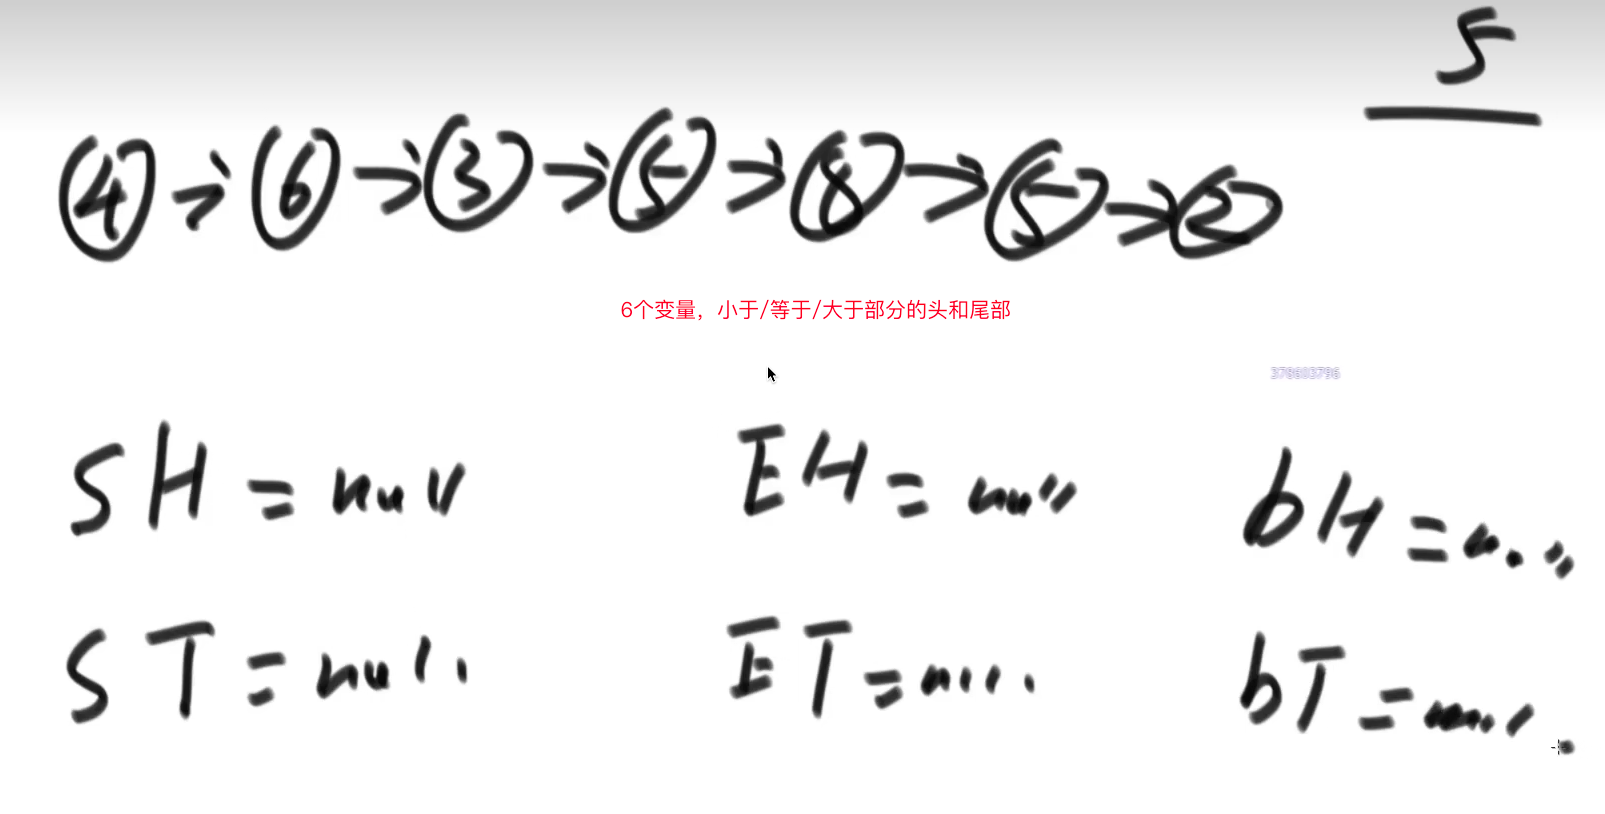 5
4 → 6 → 3 → 5 → 8 → 5 → 2
6个变量，小于/等于/大于部分的头和尾部
378603796
SH = null EH = null bH = null
ST = null ET = null bT = null